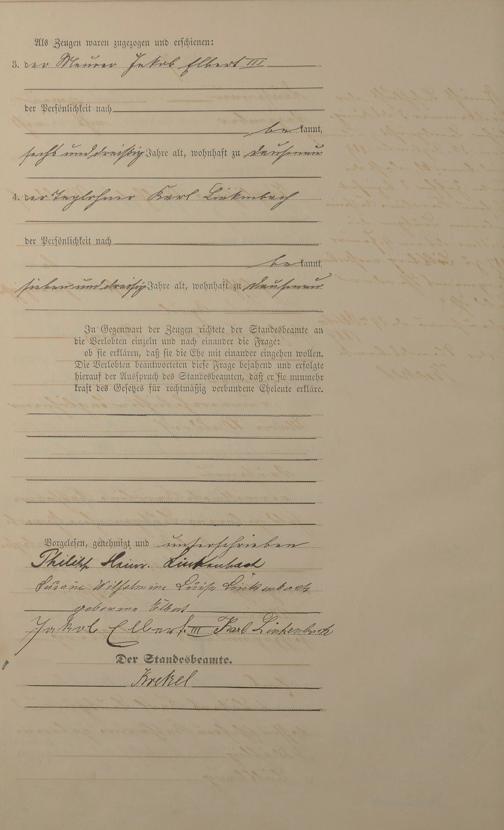 Als Zeugen waren zugezogen und erschienen:
3. der Maurer Jakob Elbert III
der Persönlichkeit nach
be kannt,
sechsunddreißig Jahre alt, wohnhaft zu Dausenau
4. der Taglöhner Karl Linkenbach
der Persönlichkeit nach
be kannt,
siebenunddreißig Jahre alt, wohnhaft zu Dausenau
In Gegenwart der Zeugen richtete der Standesbeamte an
die Verlobten einzeln und nach einander die Frage:
ob sie erklären, daß sie die Ehe mit einander eingehen wollen.
Die Verlobten beantworteten diese Frage bejahend und erfolgte
hierauf der Ausspruch des Standesbeamten, daß er sie nunmehr
kraft des Gesetzes für rechtmäßig verbundene Eheleute erkläre.
Vorgelesen, genehmigt und unterschrieben
Philipp Heinr. Linkenbach
Wilhelmine Luise Linkenbach
geborene Elbert
Jakob Elbert III Karl Linkenbach
Der Standesbeamte.
Krekel